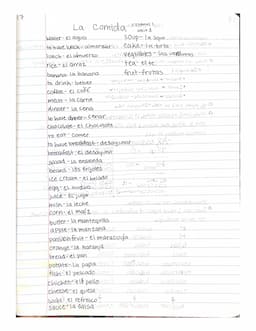 La Comida
water - el agua
soup - la sopa
to have lunch - almorzar
cake - la torta
lunch - el almuerzo
vegetables - las
rice - el arroz
tea - el té
banana - la banana
fruit - frutas
to drink - beber
coffee - el café
meat - la carne
dinner - la cena
to have dinner - cenar
chocolate - el chocolate
to eat - comer
to have breakfast - desayunar
breakfast - el desayuno
salad - la ensalada
beans - los frijoles
ice cream - el helado
egg - el huevo
juice - el jugo
milk - la leche
corn - el maíz
butter - la mantequilla
apple - la manzana
passionfruit - el maracuyá
orange - la naranja
bread - el pan
potato - la papa
fish - el pescado
chicken - el pollo
cheese - el queso
soda - el refresco
sauce - la salsa